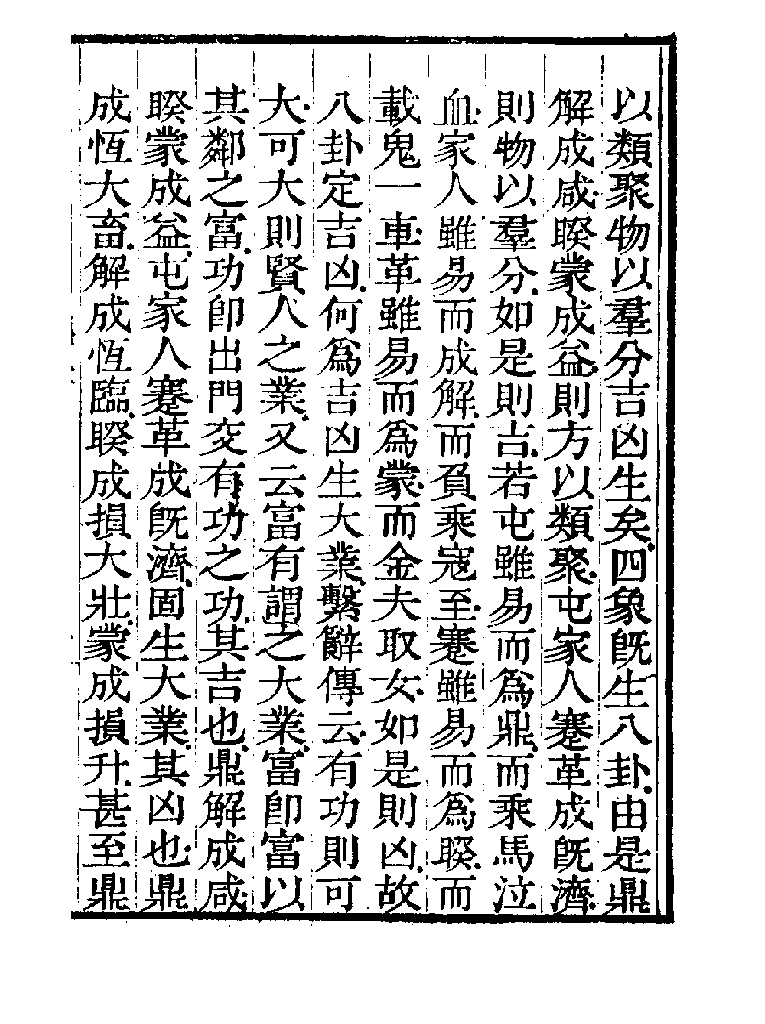 以類聚物以羣分吉凶生矣四象旣生八卦由是鼎
解成咸睽蒙成益則方以類聚屯家人蹇革成旣濟
則物以羣分如是則吉若屯雖易而爲鼎而乘馬泣
血家人雖易而成解而負乘寇至蹇雖易而爲睽而
載鬼一車革雖易而爲蒙而金夫取女如是則凶故
八卦定吉凶何爲吉凶生大業繫辭傳云有功則可
大可大則賢人之業又云富有謂之大業富卽富以
其鄰之富功卽出門交有功之功其吉也鼎解成咸
睽蒙成益屯家人蹇革成旣濟固生大業其凶也鼎
成恆大畜解成恆臨睽成損大壯蒙成損升甚至鼎